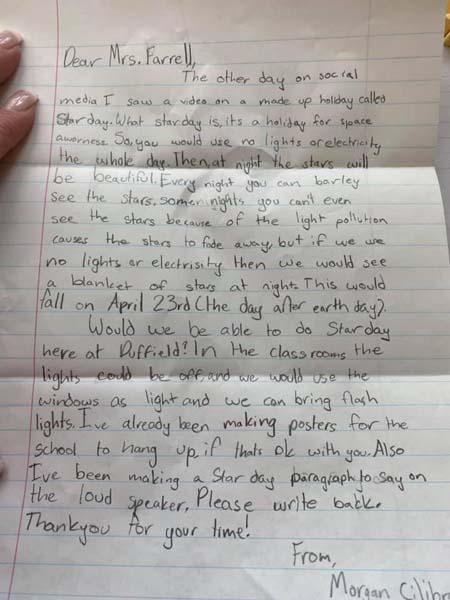 Dear Mrs. Farrell,
The other day on social
media I saw a video on a made up holiday called
Starday. What starday is, its a holiday for space
awarness. So, you would use no lights or electricity
the whole day. Then, at night the stars will
be beautiful. Every night you can barley
see the stars, some nights you can't even
see the stars because of the light pollution
causes the stars to fade away, but if we use
no lights or electrisity then we would see
a blanket of stars at night. This would
fall on April 23rd (the day after earth day).
Would we be able to do Starday
here at Duffield? In the classrooms the
lights could be off, and we would use the
windows as light and we can bring flash
lights. I've already been making posters for the
school to hang up, if thats ok with you. Also
I've been making a Star day paragraph to say on
the loud speaker. Please write back.
Thankyou for your time!
From,
Morgan